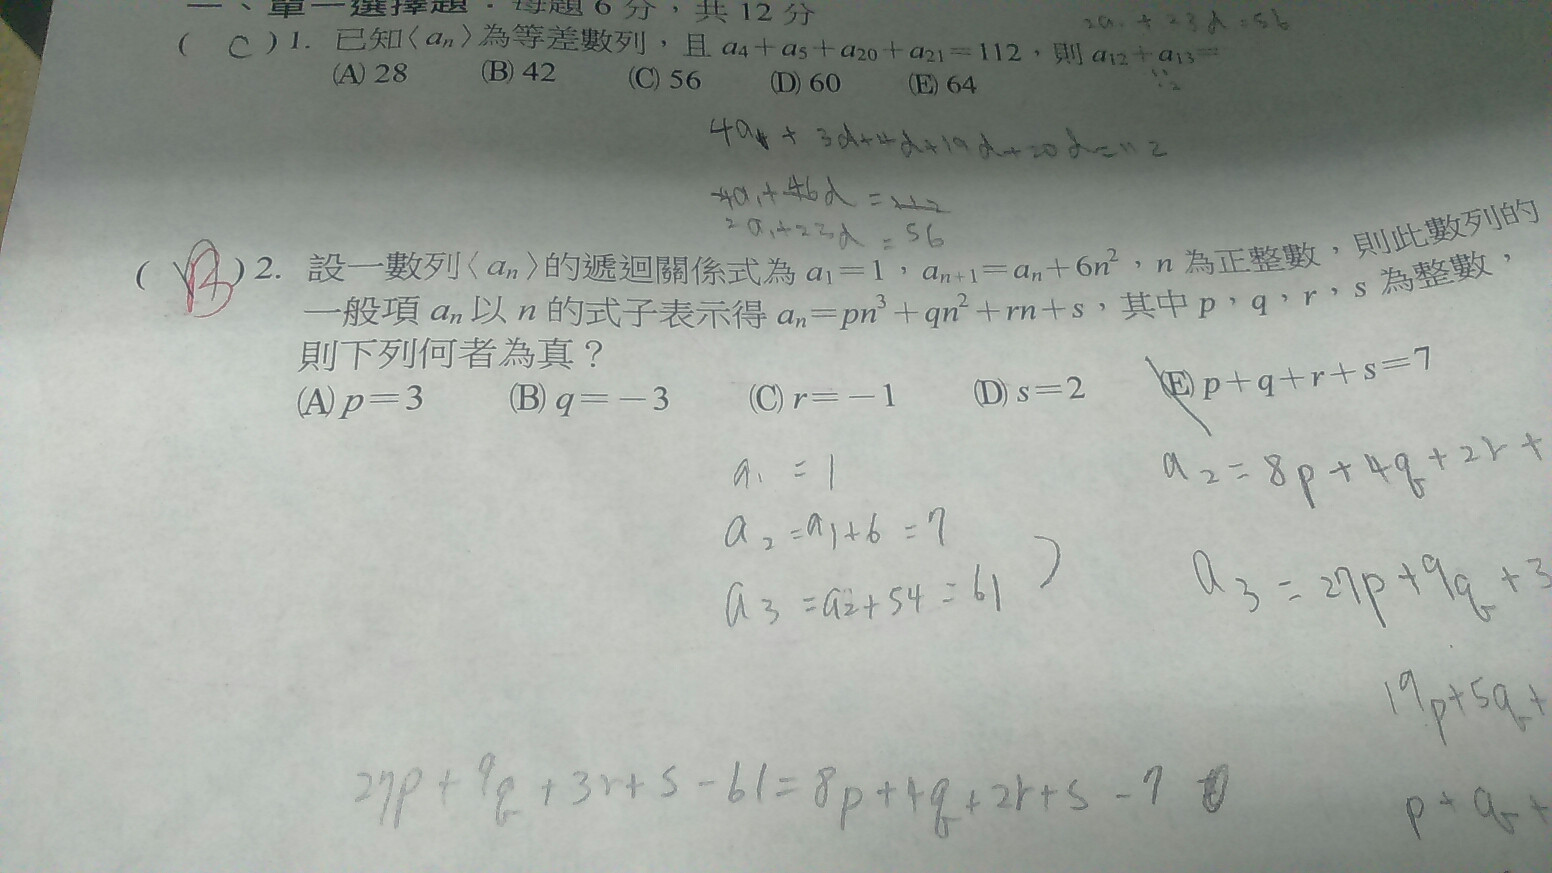 一、單一選擇題：每題 6 分，共 12 分
2a₁ + 23d = 56
( C ) 1. 已知〈aₙ〉為等差數列，且 a₄＋a₅＋a₂₀＋a₂₁＝112，則 a₁₂＋a₁₃＝
(A) 28 (B) 42 (C) 56 (D) 60 (E) 64
4a₁ + 3d+4d+19d+20d=112
4a₁+46d = 112
2a₁+23d = 56
( B ) 2. 設一數列〈aₙ〉的遞迴關係式為 a₁＝1，aₙ₊₁＝aₙ＋6n²，n 為正整數，則此數列的
一般項 aₙ 以 n 的式子表示得 aₙ＝pn³＋qn²＋rn＋s，其中 p，q，r，s 為整數，
則下列何者為真？
(A) p＝3 (B) q＝－3 (C) r＝－1 (D) s＝2 (E) p＋q＋r＋s＝7
a₁ = 1
a₂ = 8p + 4q + 2r +
a₂ =a₁+6 = 7
a₃ =a₂+54 = 61
a₃ = 27p+9q+3
19p+5q+
27p+9q+3r+s-61=8p+4q+2r+s-7
p+q+